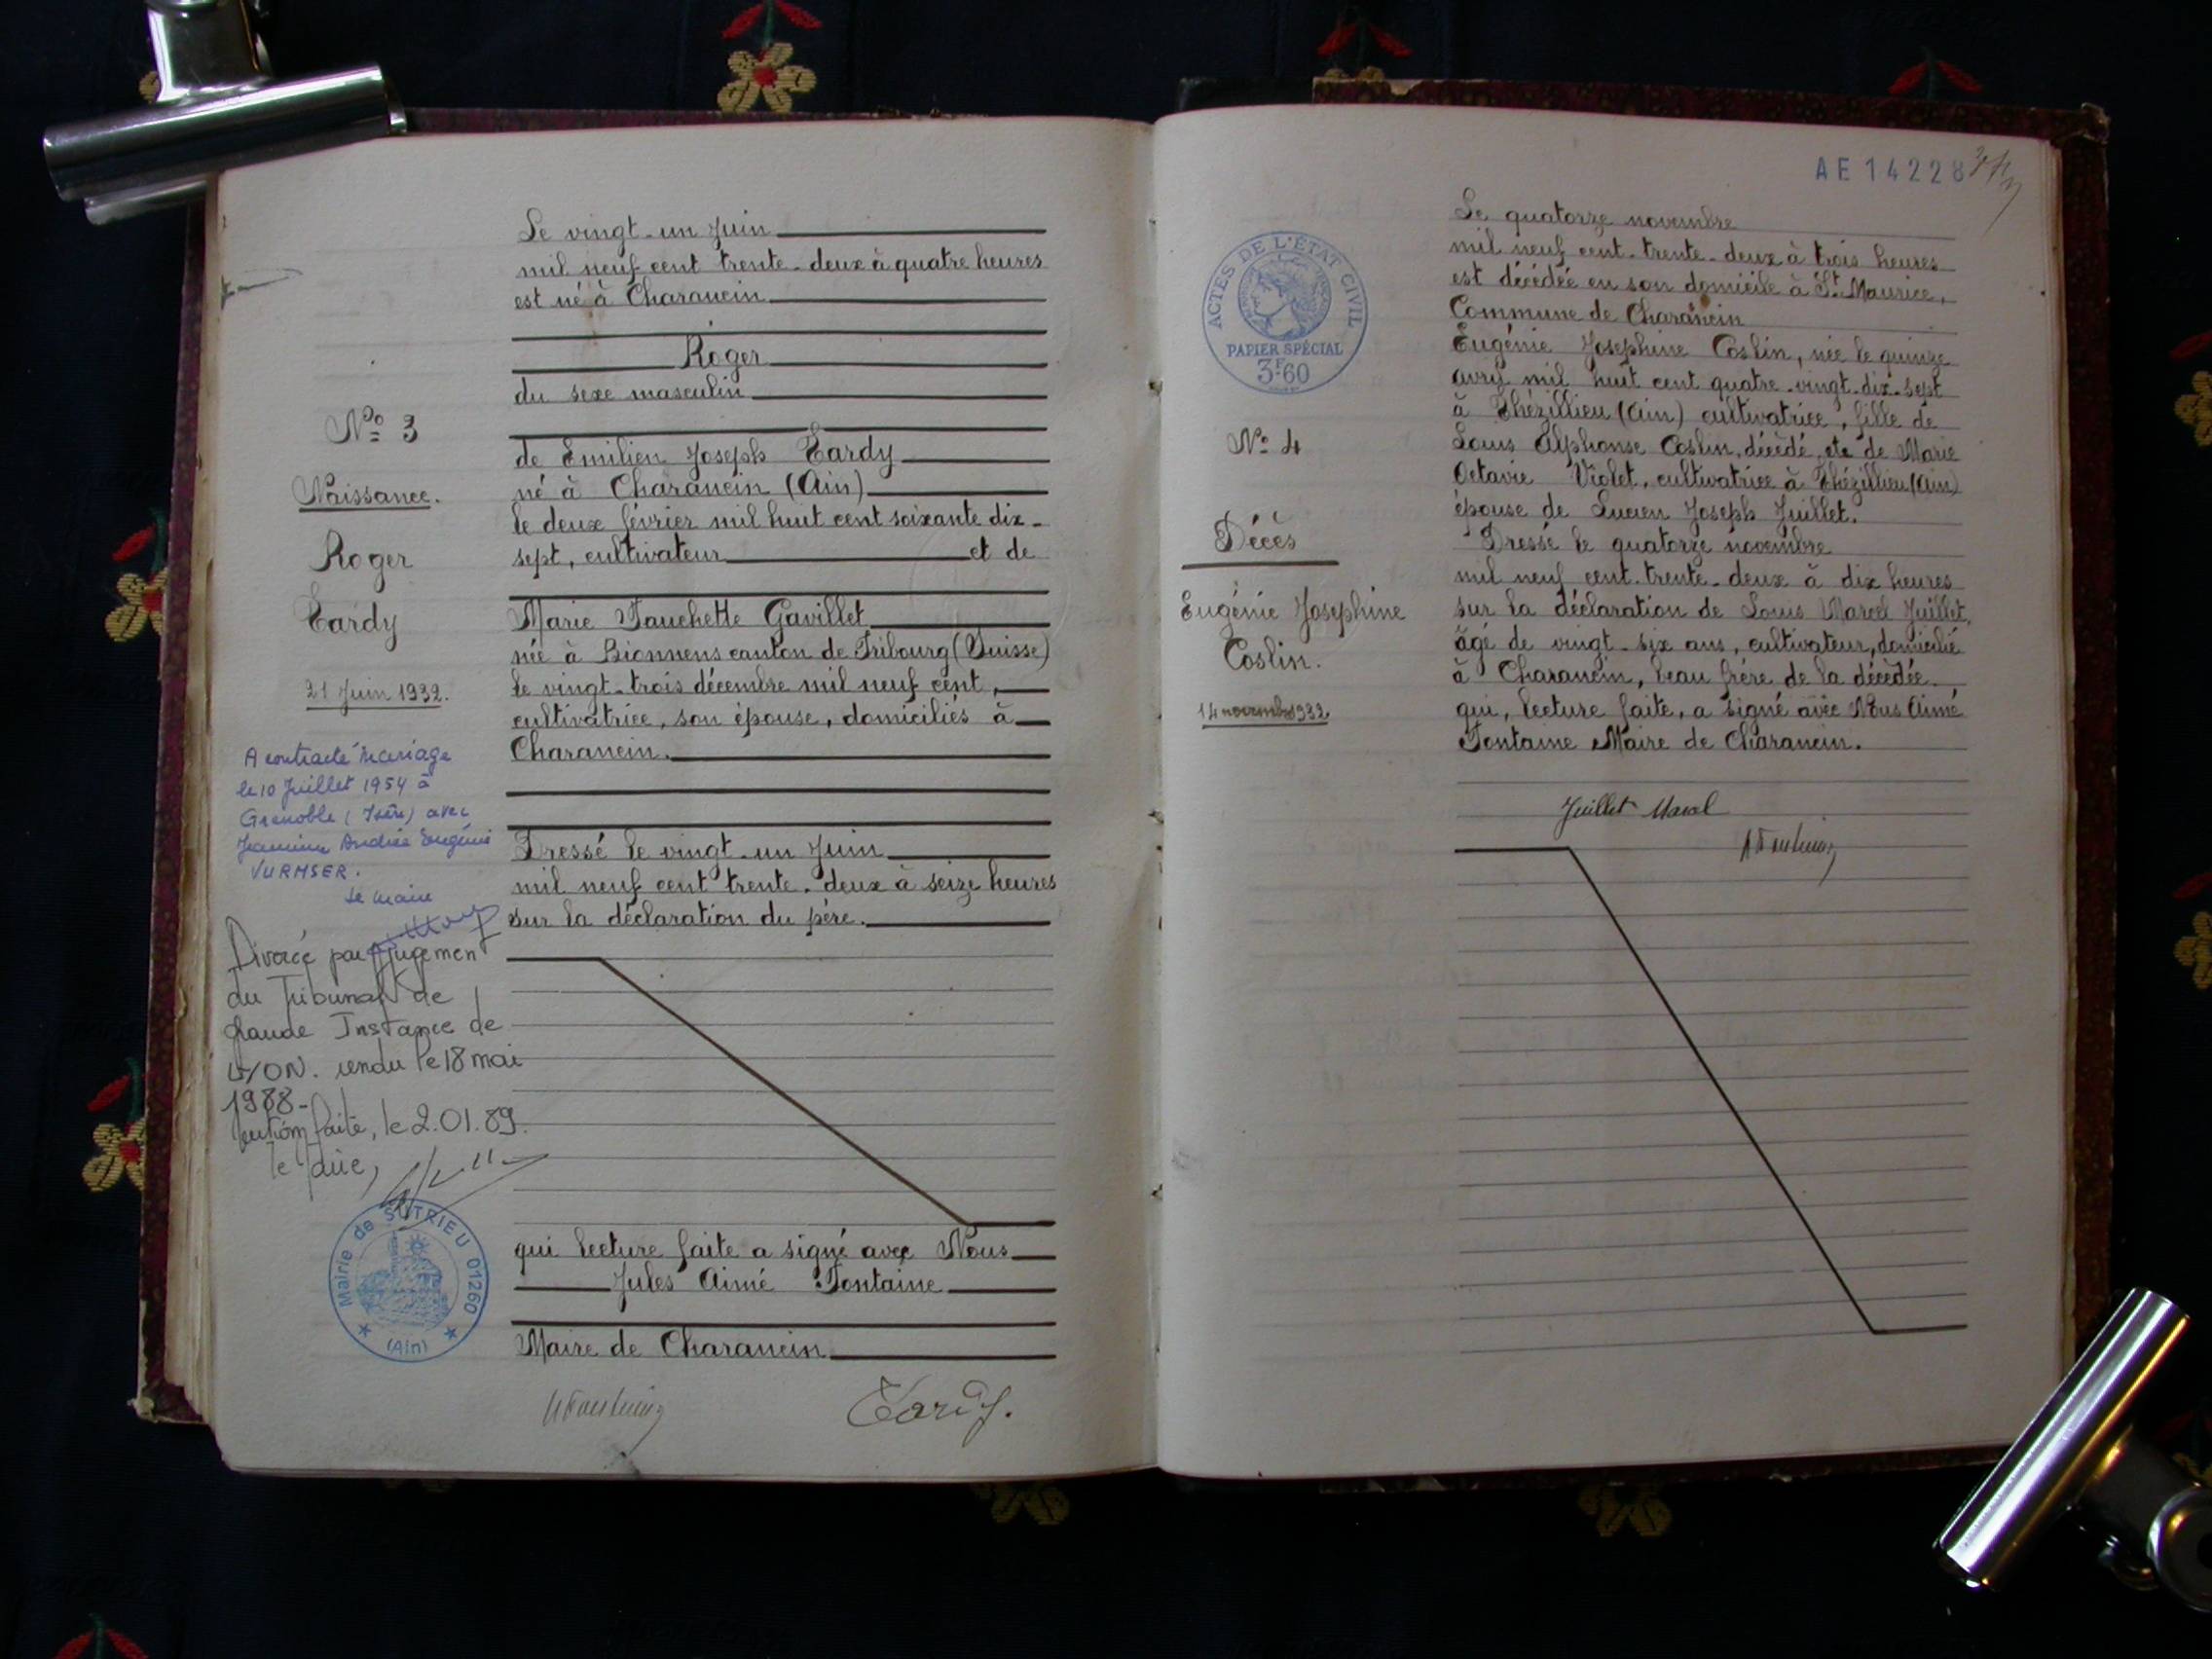 Le vingt-un Juin
mil neuf cent trente-deux à quatre heures
est né à Charancin
Roger
du sexe masculin
de Emilien Joseph Tardy
né à Charancin (Ain)
le deux février mil huit cent soixante dix-
sept, cultivateur et de
Marie Fauchette Gavillet
née à Bionnens canton de Fribourg (Suisse)
le vingt-trois décembre mil neuf cent,
cultivatrice, son épouse, domiciliés à
Charancin.
Dressé le vingt-un Juin
mil neuf cent trente-deux à seize heures
sur la déclaration du père.
qui lecture faite a signé avec Nous
Jules Aimé Fontaine
Maire de Charancin
Tardy.
No 3
Naissance.
Roger
Tardy
21 Juin 1932.
A contracté mariage
le 10 Juillet 1954 à
Grenoble (Isère) avec
Jeannine Andrée Eugénie
VURMSER.
Le maire
Divorcé par jugement
du Tribunal de
grande Instance de
LYON. rendu le 18 mai
1988-
faite, le 2.01.89.
le
Mairie de SUTRIEU 01260
(Ain)
AE 14228
ACTES DE L'ÉTAT CIVIL
PAPIER SPÉCIAL
3F60
No 4
Décès
Eugénie Josephine
Coslin.
14 novembre 1932.
Le quatorze novembre
mil neuf cent-trente-deux à trois heures
est décédée en son domicile à St Maurice,
Commune de Charancin
Eugénie Josephine Coslin, née le quinze
avril mil huit cent quatre-vingt-dix-sept
à Thézillieu (Ain) cultivatrice, fille de
Louis Alphonse Coslin, décédé, et de Marie
Octavie Violet, cultivatrice à Thézillieu (Ain)
épouse de Lucien Joseph Juillet.
Dressé le quatorze novembre
mil neuf cent-trente-deux à dix heures
sur la déclaration de Louis Marcel Juillet,
âgé de vingt-six ans, cultivateur, domicilié
à Charancin, beau frère de la décédée.
qui, lecture faite, a signé avec Nous Aimé
Fontaine Maire de Charancin.
Juillet Marcel